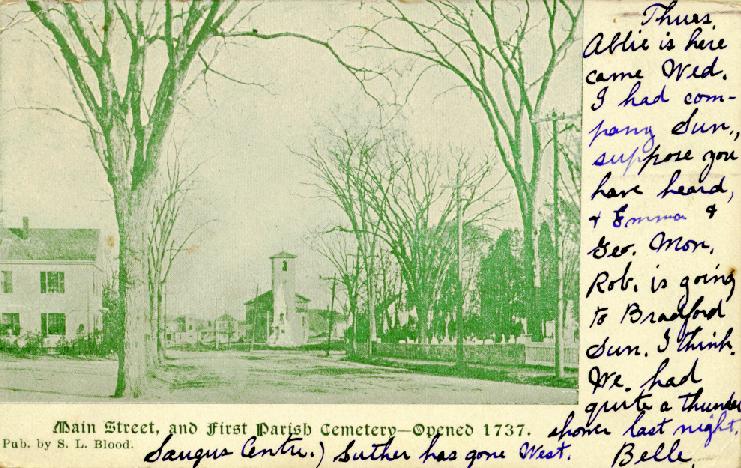 Thurs.
Abbie is here
came Wed.
I had com-
pany Sun.,
suppose you
have heard,
& Emma &
Geo. Mon.
Rob. is going
to Bradford
Sun. I think.
We. had
quite a thunder
shower last night,
Belle.
Main Street, and First Parish Cemetery—Opened 1737.
Pub. by S. L. Blood.
Saugus Centre.) Luther has gone West.